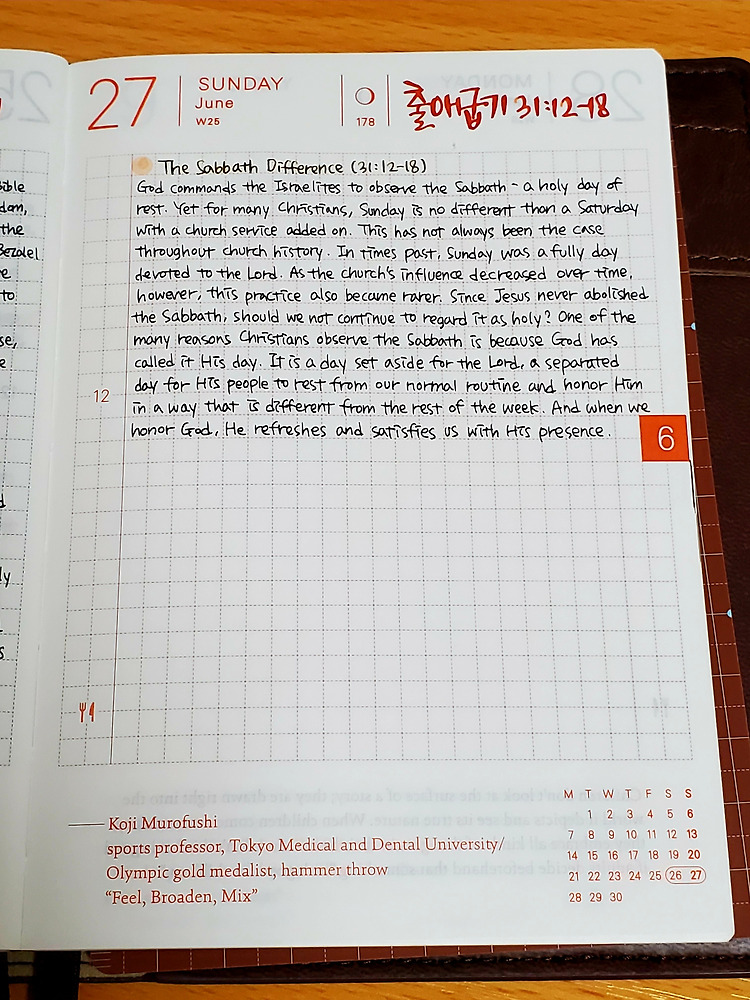 27
SUNDAY
June
W25
178
출애굽기 31:12-18
The Sabbath Difference (31:12-18)
God commands the Israelites to observe the Sabbath - a holy day of
rest. Yet for many Christians, Sunday is no different than a Saturday
with a church service added on. This has not always been the case
throughout church history. In times past, Sunday was a fully day
devoted to the Lord. As the church's influence decreased over time,
however, this practice also became rarer. Since Jesus never abolished
the Sabbath, should we not continue to regard it as holy? One of the
many reasons Christians observe the Sabbath is because God has
called it His day. It is a day set aside for the Lord, a separated
day for His people to rest from our normal routine and honor Him
12
in a way that is different from the rest of the week. And when we
honor God, He refreshes and satisfies us with His presence.
6
Koji Murofushi
sports professor, Tokyo Medical and Dental University/
Olympic gold medalist, hammer throw
"Feel, Broaden, Mix"
M T W T F S S
1 2 3 4 5 6
7 8 9 10 11 12 13
14 15 16 17 18 19 20
21 22 23 24 25 26 27
28 29 30
ible
dam,
the
Bezalel
e
to
se,
e
d
ly
s